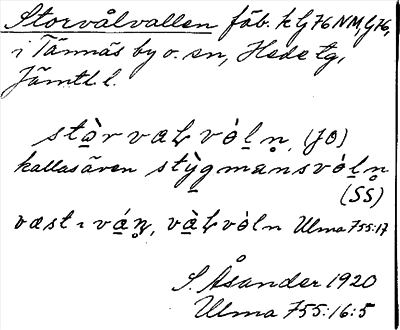 Storvålvallen fäb. k G76NM, G76,
i Tännäs by o. sn, Hede tg,
Jämtl. l.
stòrvaƚvòln̥, (JO)
kallas även stỳgmansvóln̥
(SS)
væst ı váņ, vàƚvòln Ulma 755:17
S. Åsander 1920
Ulma 755:16:5